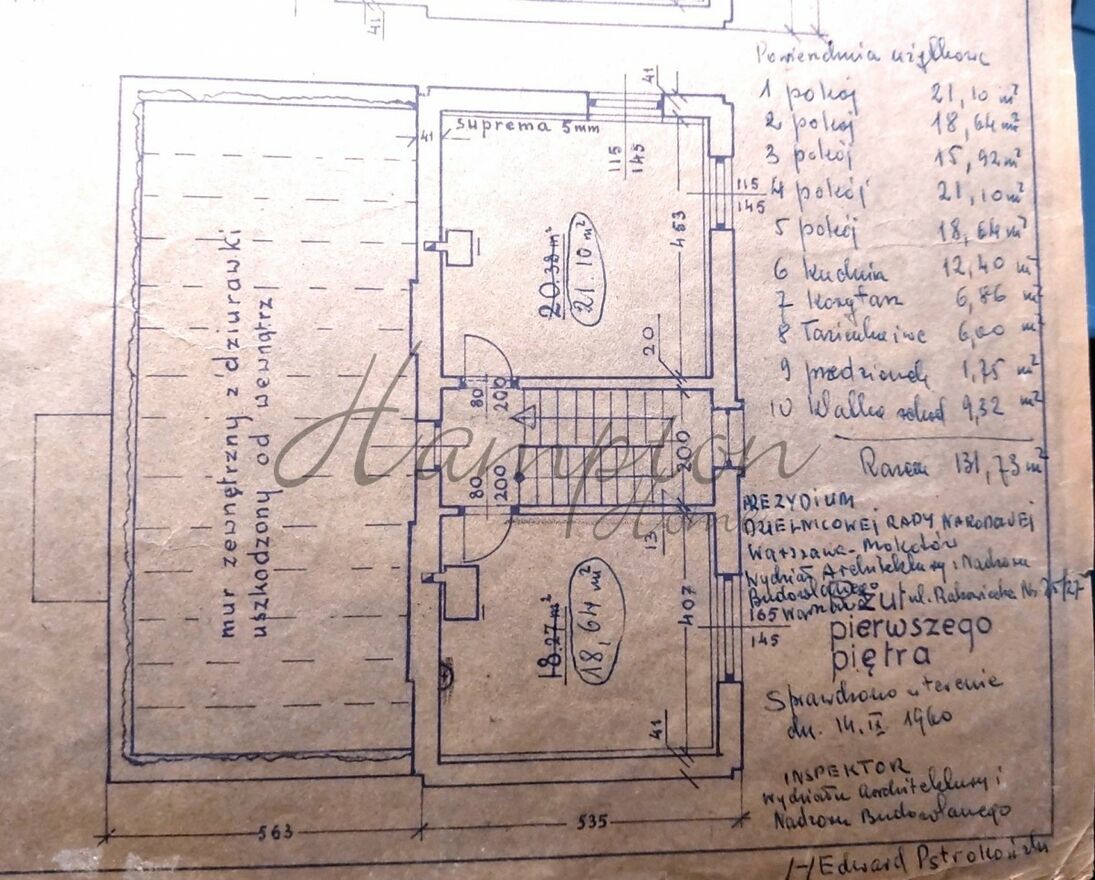 41
41
suprema 5mm
41
115
145
115
145
453
20.38 m²
21.10 m²
20
mur zewnętrzny z dziurawki
uszkodzony od wewnątrz
80
200
80
200
200
13
Hampton
Home
407
18.27 m²
18,64 m²
165
145
41
563
535
Powierzchnia użytkowa
1 pokój 21,10 m²
2 pokój 18,64 m²
3 pokój 15,92 m²
4 pokój 21,10 m²
5 pokój 18,64 m²
6 kuchnia 12,40 m²
7 korytarz 6,86 m²
8 6,00 m²
9 przedsionek 1,75 m²
10 9,32 m²
Razem 131,73 m²
PREZYDIUM
DZIELNICOWEJ RADY NARODOWEJ
Warszawa-Mokotów
Wydział Architektury i Nadzoru
Budowlanego
ul. Rakowiecka Nr 25/27
rzut
pierwszego
piętra
Sprawdzono w terenie
dn. 14.IX 1960
INSPEKTOR
Wydziału Architektury i
Nadzoru Budowlanego
/-/ Edward